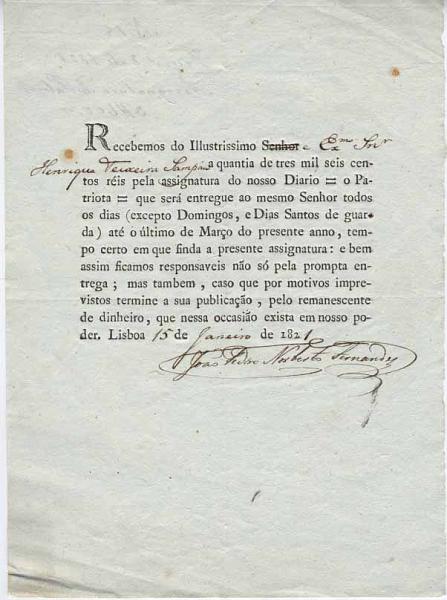 Recebemos do Illustrissimo Senhor e Exmo Snr
Henrique Teixeira Sampaio a quantia de tres mil seis cen-
tos réis pela assignatura do nosso Diario = o Pa-
triota = que será entregue ao mesmo Senhor todo
os dias (excepto Domingos, e Dias Santos de guar-
da) até o último de Março do presente anno, tem-
po certo em que finda a presente assignatura: e bem
assim ficamos responsaveis não só pela prompta en-
trega; mas tambem, caso que por motivos impre-
vistos termine a sua publicação, pelo remanescente
de dinheiro, que nessa occasião exista em nosso po-
der. Lisboa 15 de Janeiro de 1821
João Pedro Norberto Fernandes